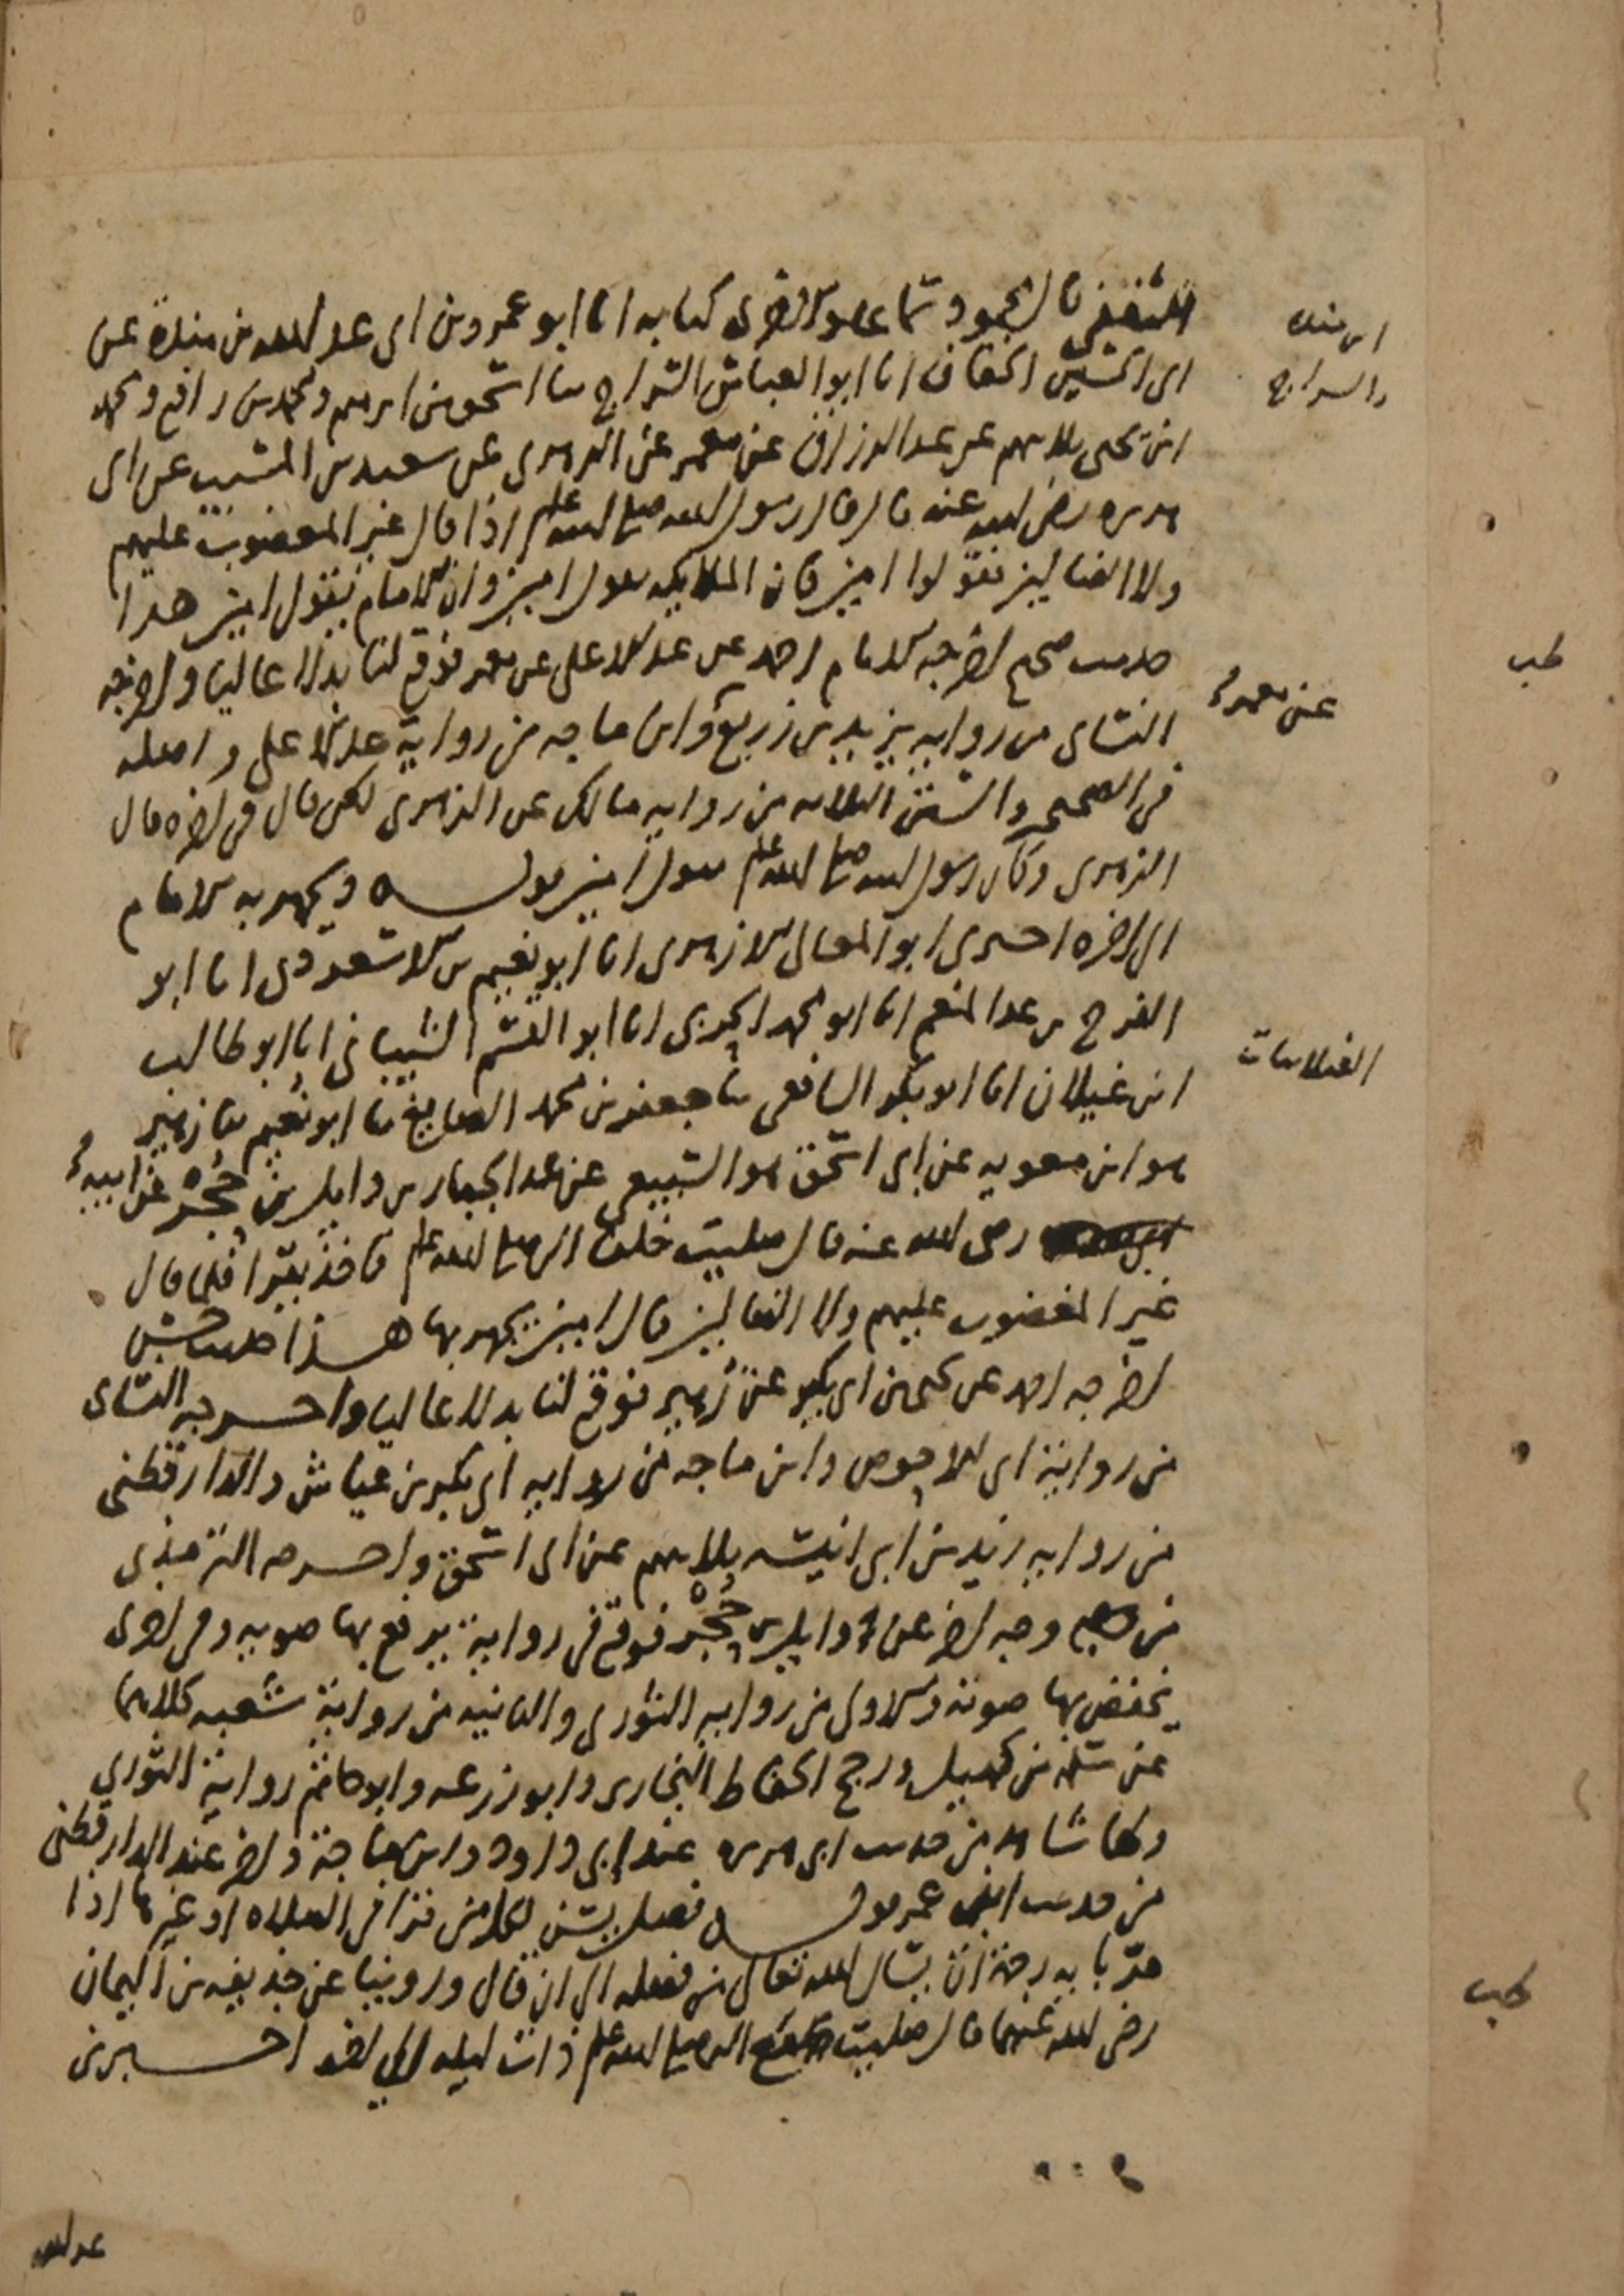 الثقفي قال محمود سماعا والاخرى كتابه انا ابو عمرو بن ابي عبد الله بن مندة عن
ابن منده
ابي الحسين الخفاف انا ابو العباس السراج ثنا اسحق بن ابرهيم ومحمد بن رافع ومحمد
والسراج
ابن يحيى ثلاثتهم عن عبد الرزاق عن معمر عن الزهري عن سعيد بن المسيب عن ابي
هريره رضي الله عنه قال قال رسول الله صلى الله عليه وسلم اذا قال غير المغضوب عليهم
ولا الضالين فقولوا امين فان الملايكه تقول امين وان الامام يقول امين هذا
حديث صحيح اخرجه الامام احمد عن عبد الاعلى عن معمر فوقع لنا بدلا عاليا واخرجه
عن معمر
النسائ من رواية يزيد بن زريع وابن ماجه من رواية عبد الاعلى واصله
في الصحيحين والسنن الثلاثه من رواية مالك عن الزهري لكن قال في اخره قال
الزهري وكان رسول الله صلى الله عليه وسلم يقول امين قوله ويجهر به الامام
الى اخره اخبرني ابو المعالي الازهري انا ابو نعيم بن الاسعردي انا ابو
الفرج بن عبد المنعم انا ابو محمد الحربي انا ابو القسم الشيباني انا ابو طالب
الغيلانيات
ابن غيلان انا ابو بكر الشافعي ثنا جعفر بن محمد الصايغ ثنا ابو نعيم ثنا زهير
هو ابن معويه عن ابي اسحق هو السبيعي عن عبد الجبار بن وايل بن حجر عن ابيه
رضي الله عنه قال صليت خلف النبي صلى الله عليه وسلم فلما قال
غير المغضوب عليهم ولا الضالين قال امين يجهر بها هذا حديث حسن
اخرجه احمد عن يحيى بن ابي بكير عن زهير فوقع لنا بدلا عاليا واخرجه النسائ
من رواية ابي الاحوص وابن ماجه من رواية ابي بكر بن عياش والدارقطني
من رواية زيد بن ابي انيسه ثلاثتهم عن ابي اسحق واخرجه الترمذي
من وجه اخر عن وايل بن حجر فوقع في رواية يرفع بها صوته وفي اخرى
يخفض بها صوته والاولى من رواية الثوري والثانيه من رواية شعبه كلاهما
عن سلمه بن كهيل ورجح الحفاظ البخاري وابو زرعه وابو حاتم رواية الثوري
ولها شاهد من حديث ابي هريره عند ابي داود وابن ماجة واخر عند الدارقطني
من حديث ابن عمر قوله فصل يسن لكل من قرا في الصلاه او غيرها اذا
مر باية رحمة ان يسال الله تعالى من فضله الى ان قال وروينا عن حذيفه بن اليمان
رضي الله عنهما قال صليت مع النبي صلى الله عليه وسلم ذات ليله الى اخره اخبرني